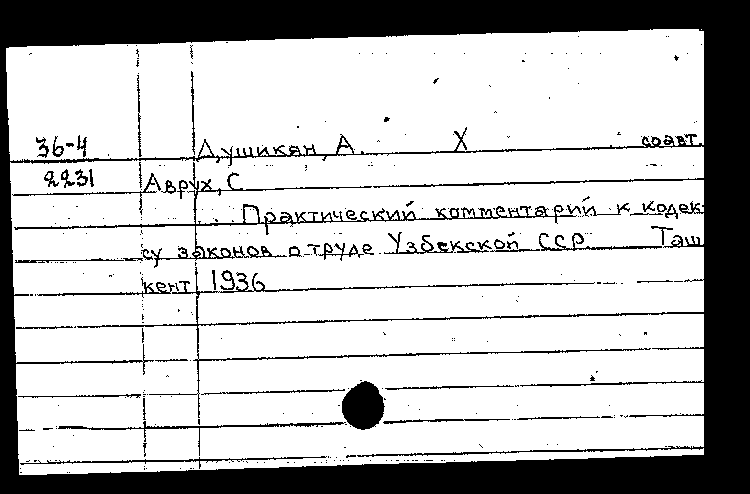 36-4 Душикян, А. X соавт.
2231 Аврух, С
Практический комментарий к кодек-
су законов о труде Узбекской ССР Таш
кент, 1936